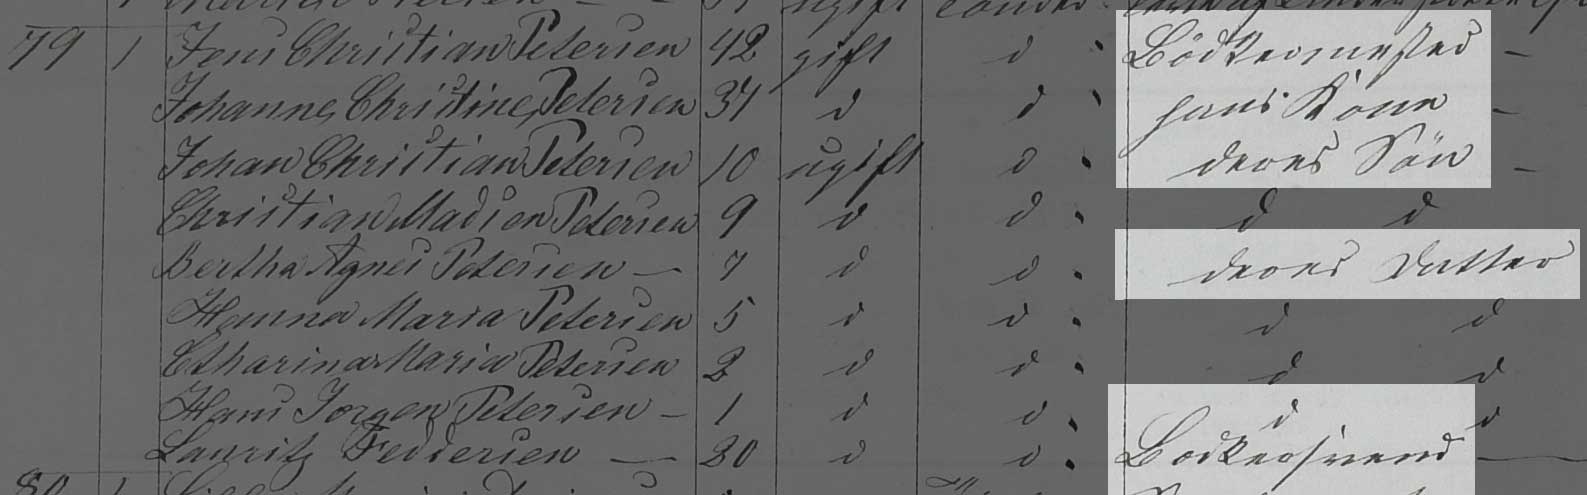 79 1 Jens Christian Petersen 42 gift d Bödkermester —
Johanne Christine Petersen 37 d d hans Kone —
Johan Christian Petersen 10 ugift d deres Sön —
Christian Madsen Petersen 9 d d d d
Bertha Agnes Petersen — 7 d d deres Datter
Hanna Maria Petersen 5 d d d d
Catharina Maria Petersen 2 d d d d
Hans Jorgen Petersen — 1 d d d d
Lauritz Feddersen — 20 d d Bodkersvend —
80 1